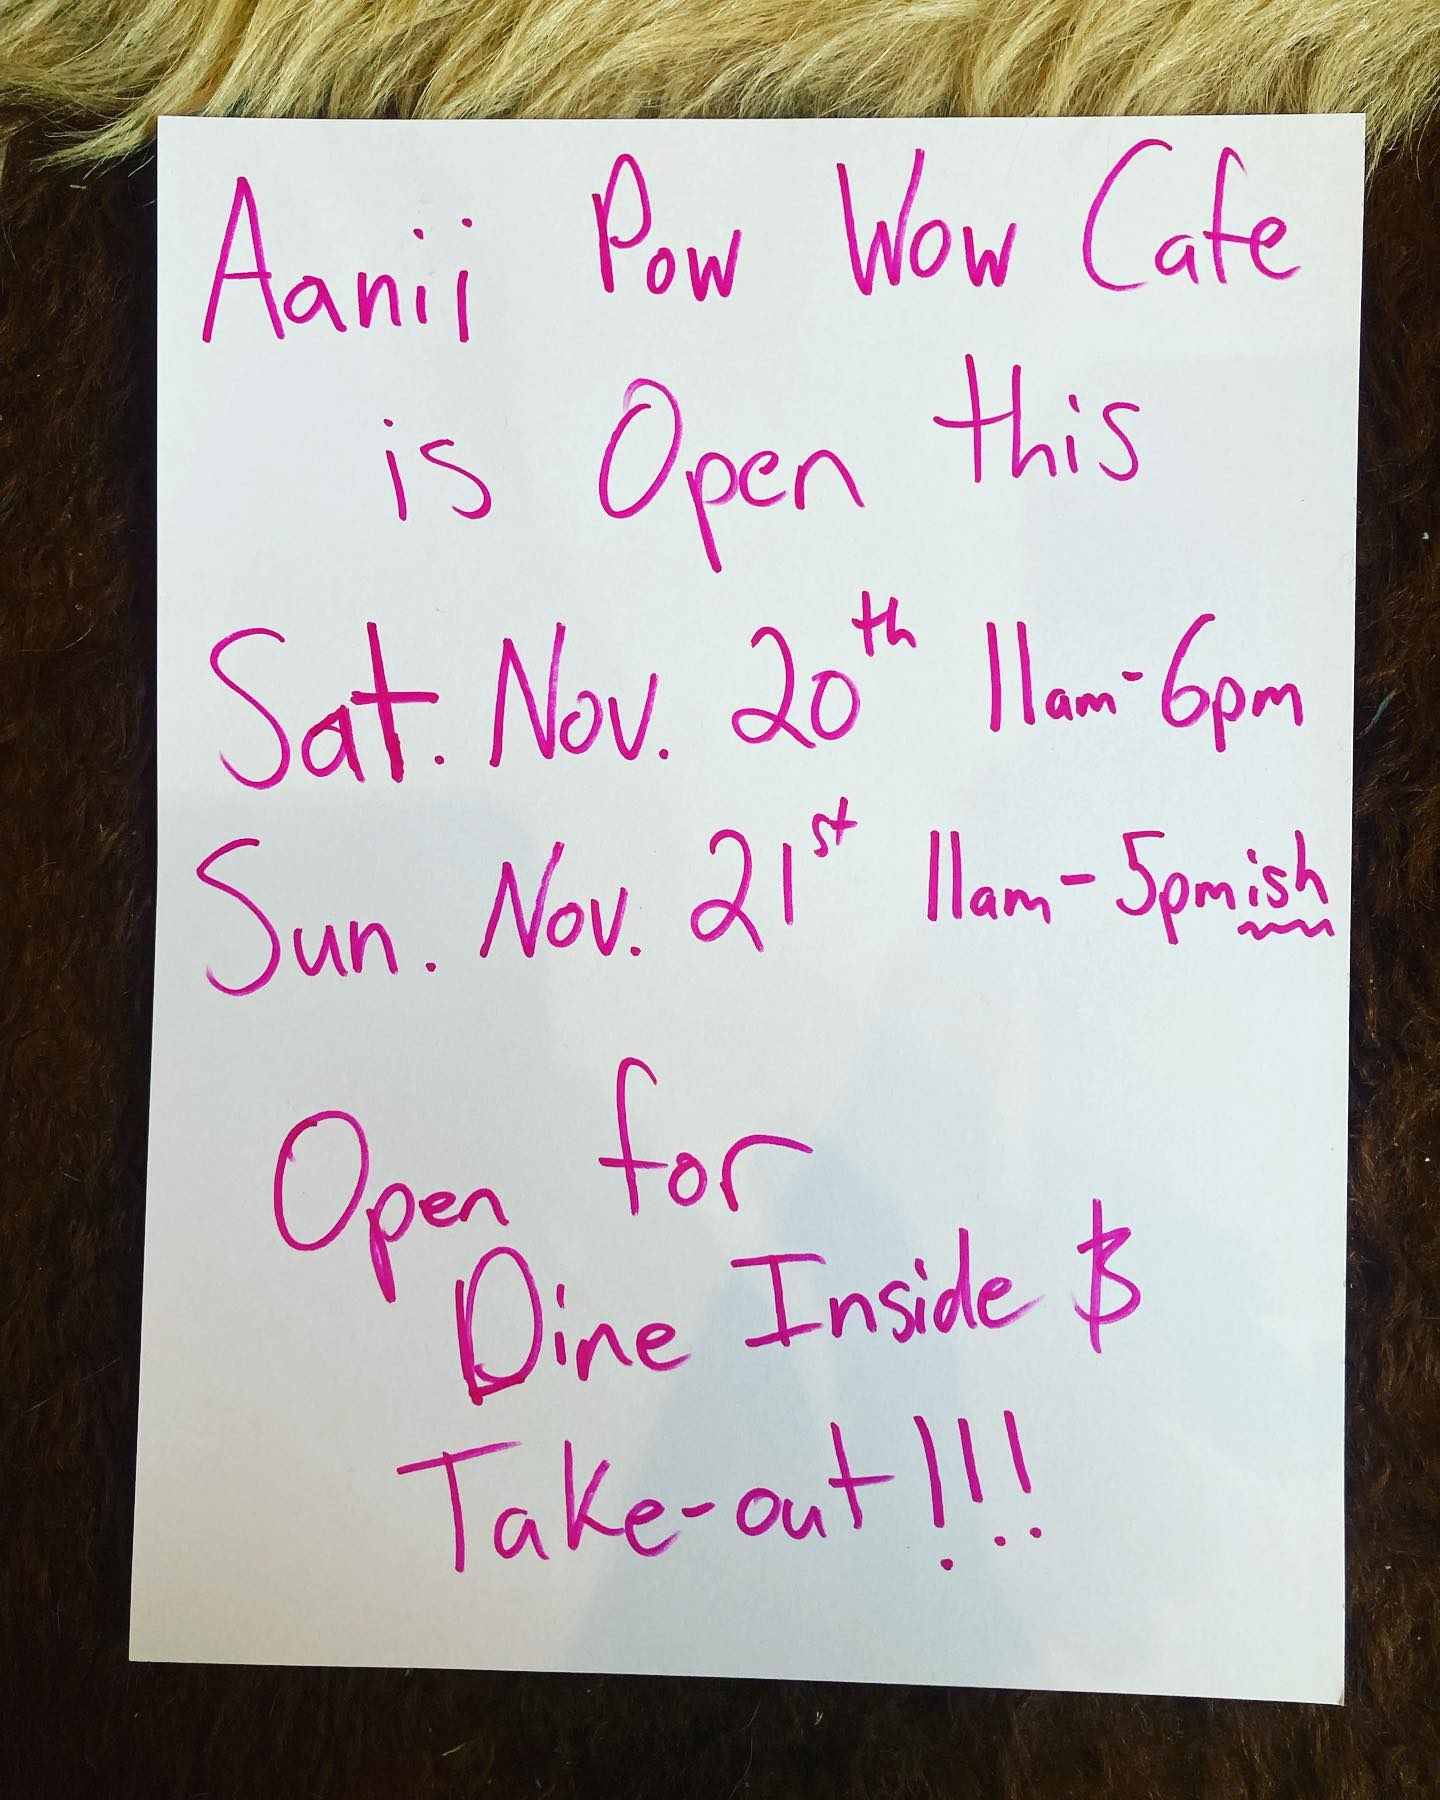 Aanii Pow Wow Cafe
is Open this
Sat. Nov. 20th 11am-6pm
Sun. Nov. 21st 11am-5pmish
Open for
Dine Inside &
Take-out!!!